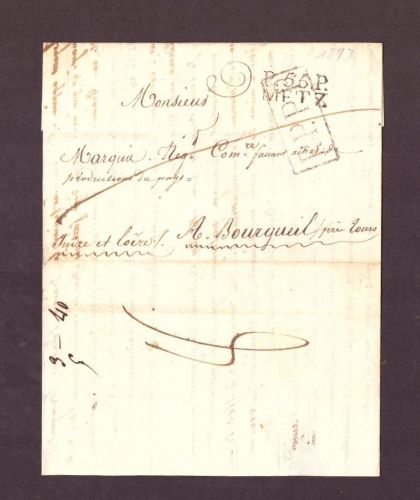 1897
P.55.P.
METZ
P.P.P.P.
Monsieur
Marquis. Nég.t Com.re faisant achats de
productions du pays =
Indre et Loire/. A. Bourgueil/près Tours
3 – 40